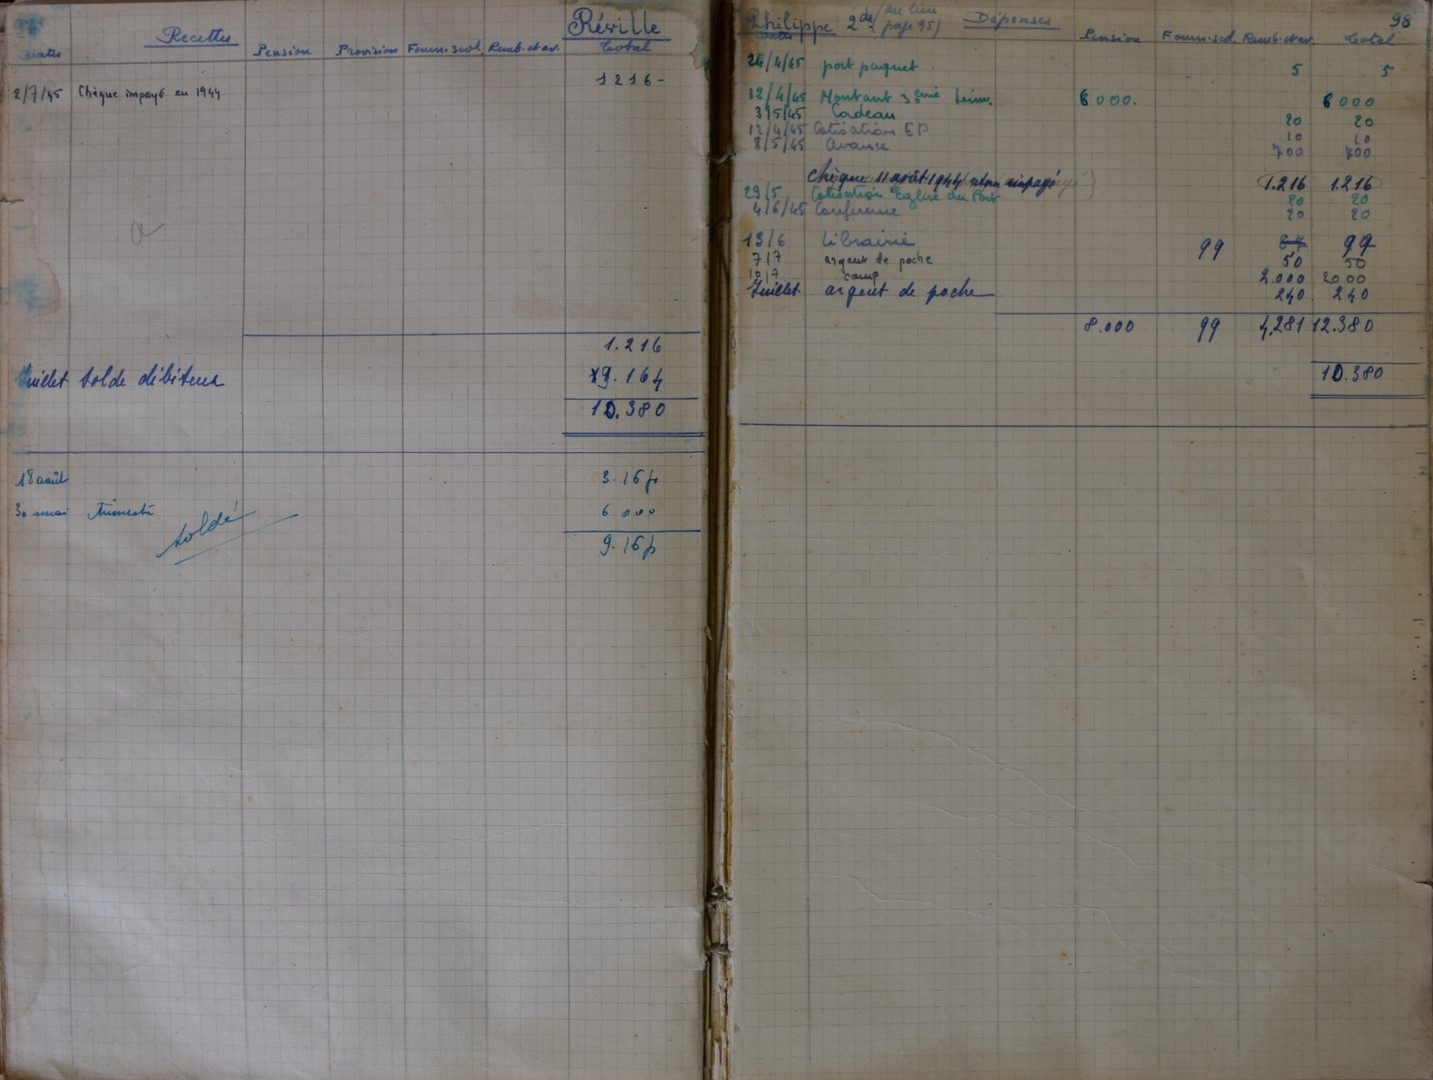 Réville
Recettes
Dates Pension Provision Fourn. scol. Remb. et av. Total
2/7/45 Chèque impayé en 1944 1216-
1.216
Juillet solde débiteur 9.164
10.380
18 août 3.164
30 mai trimestre 6000
soldé
9.164
Philippe 2de (au lieu page 95) Dépenses 98
Dates Pension Fourn. scol. Remb. et av. Total
24/4/45 port paquet 5 5
12/4/45 Montant 3ème trim. 6000. 6000
3/5/45 Cadeau 20 20
12/4/45 Cotisation EP 10 10
8/5/45 avance 700 700
Chèque 11 août 1944 retour impayé 1.216 1.216
29/5 Cotisation Eglise du Port 20 20
4/6/45 Conférence 20 20
13/6 Librairie 99 99
7/7 argent de poche 50 50
10/7 camp 2.000 2000
Juillet argent de poche 240 240
8.000 99 4.281 12.380
10.380